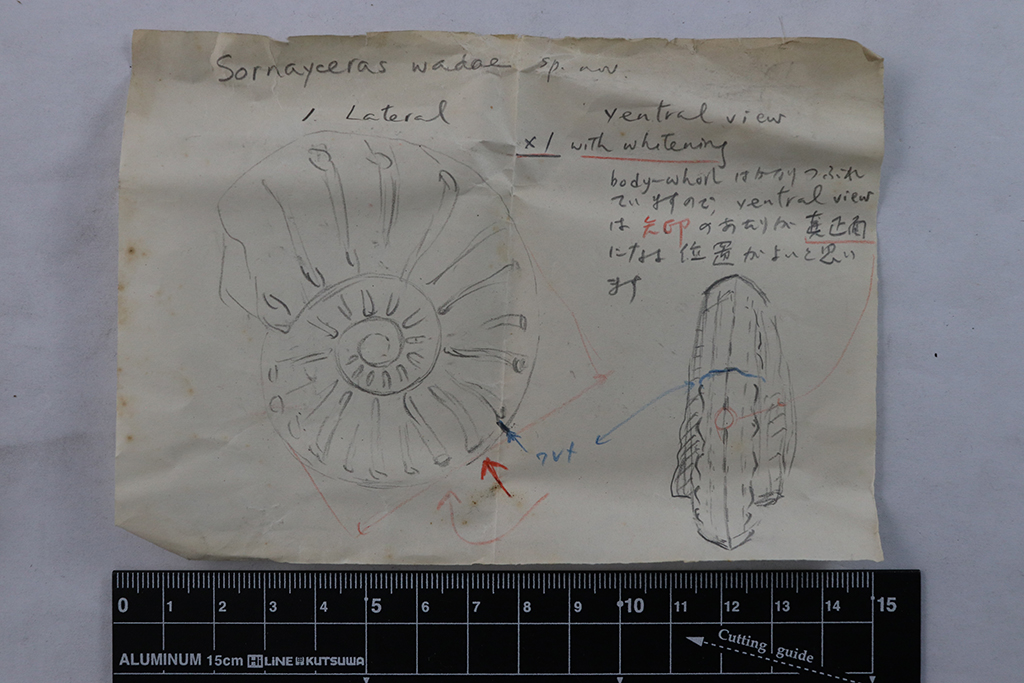 Sornayceras wadae sp. nov.
1 Lateral
ventral view
×1 with whitening
body-whorl はかなりつぶれ
ていますので, ventral view
は 矢印 のあたりが 真正面
になる 位置がよいと思い
ます
ワレメ
0 1 2 3 4 5 6 7 8 9 10 11 12 13 14 15
Cutting guide
ALUMINUM 15cm Hi LiNE KUTSUWA